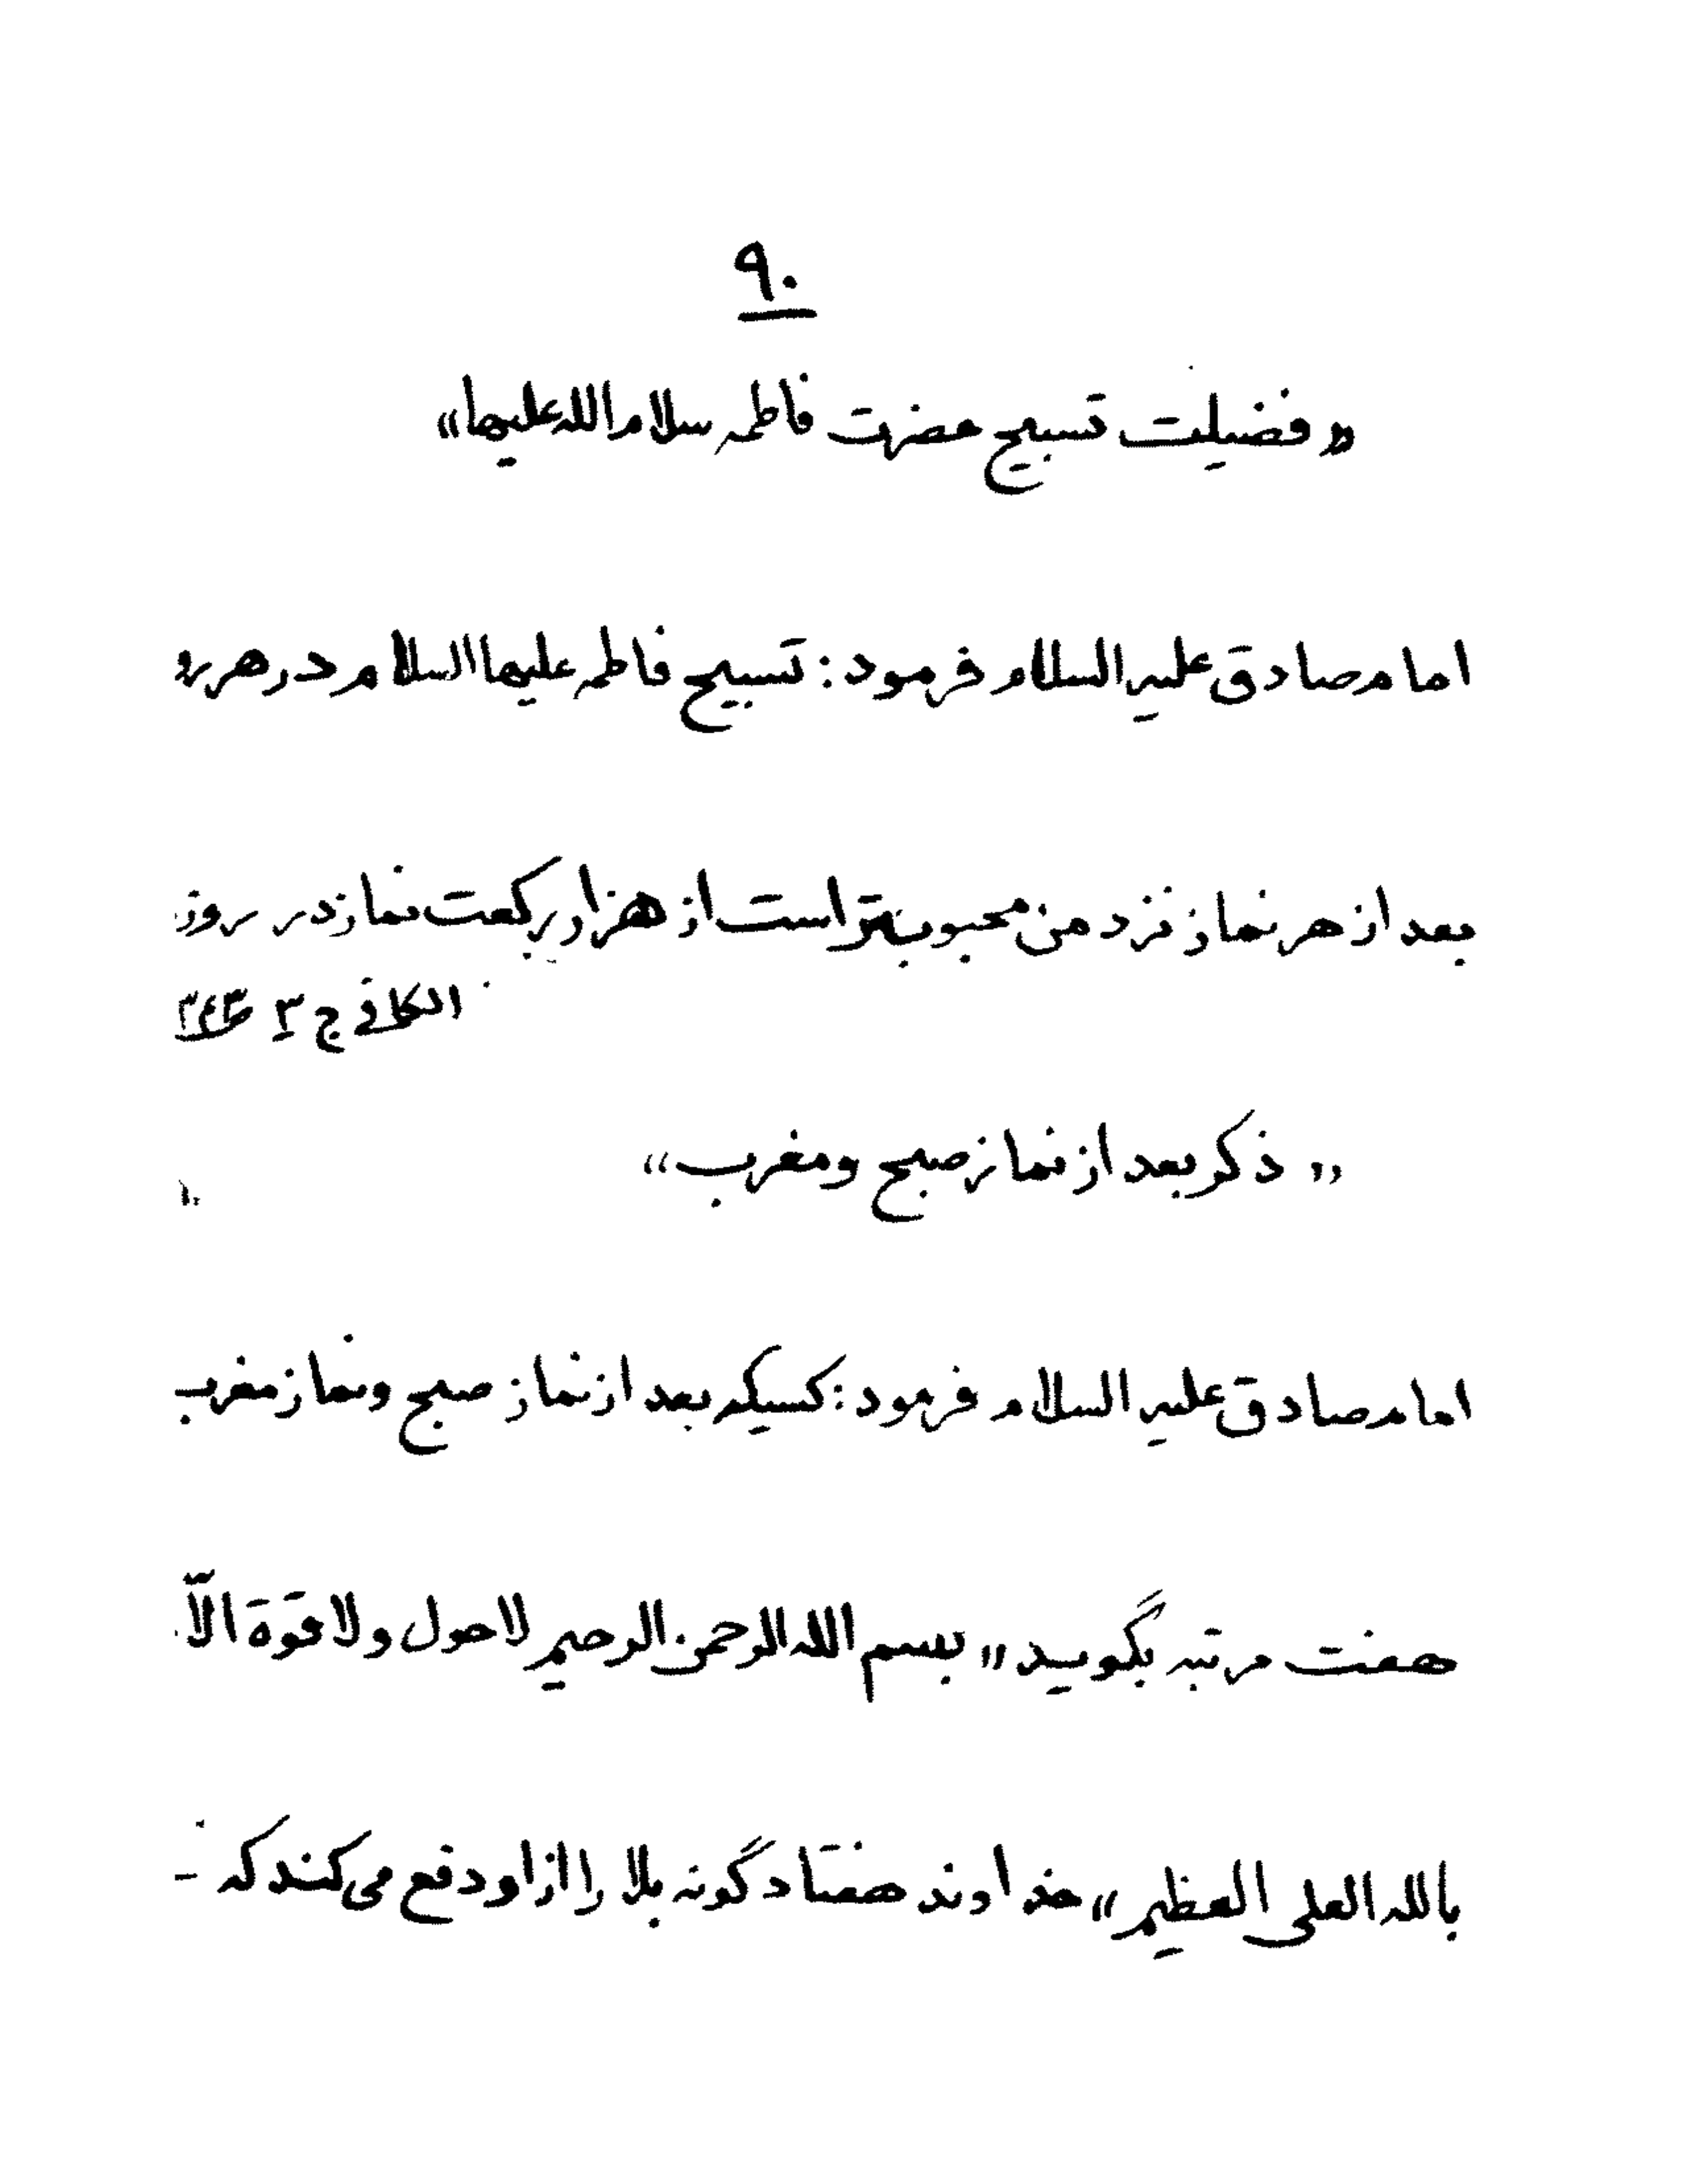 ۹۰
«فضیلت تسبیح حضرت فاطمه سلام الله علیها»
امام صادق علیه السلام فرمود: تسبیح فاطمه علیها السلام در هر رو
بعد از هر نماز نزد من محبوبتر است از هزار رکعت نماز در روز
الکافی ج ۳ ص ۳۴۳
«ذکر بعد از نماز صبح و مغرب»
امام صادق علیه السلام فرمود: کسیکه بعد از نماز صبح و نماز مغرب
هفت مرتبه بگوید «بسم الله الرحمن الرحیم لا حول ولا قوة الّا
بالله العلی العظیم» خداوند هفتاد گونه بلا را از او دفع می کند که